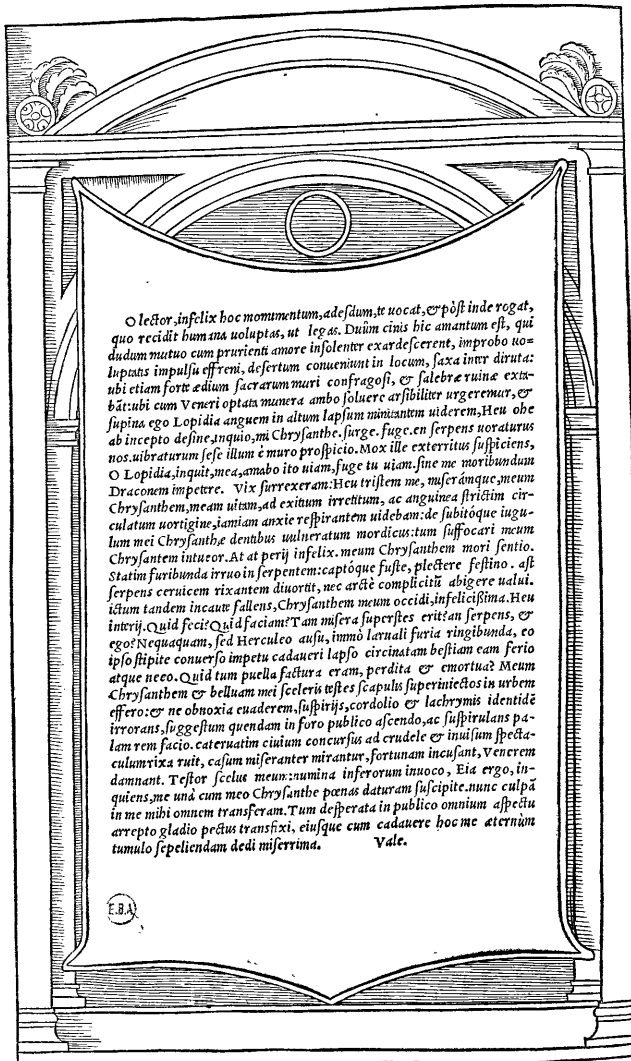 O lector,infelix hoc monumentum,adeſdum,te uocat,&pòſt inde rogat,
quo recidit humana uoluptas, ut legas. Duûm cinis hic amantum eſt, qui
dudum mutuo cum prurienti amore inſolenter exardeſcerent, improbo uo=
luptatis impulſu effreni, deſertum conueniunt in locum, ſaxa inter diruta:
ubi etiam forte ædium ſacrarum muri confragoſi, & ſalebræ ruinæ exta-
bāt:ubi cum Veneri optata munera ambo ſoluere arſibiliter urgeremur,&
ſupina ego Lopidia anguem in altum lapſum minitantem uiderem,Heu ohe
ab incepto deſine,inquio,mi Chryſanthe.ſurge.fuge.en ſerpens uoraturus
nos.uibraturum ſeſe illum è muro proſpicio.Mox ille exterritus ſuſpiciens,
O Lopidia,inquit,mea,amabo ito uiam,fuge tu uiam.ſine me moribundum
Draconem impetere. Vix ſurrexeram:Heu triſtem me, miſerámque,meum
Chryſanthem,meam uitam,ad exitium irretitum, ac anguinea ſtrictim cir-
culatum uortigine,iamiam anxie reſpirantem uidebam:de ſubitóque iugu-
lum mei Chryſanthę dentibus uulneratum mordicus:tum ſuffocari meum
Chryſantem intueor.At at perij infelix.meum Chryſanthem mori ſentio.
Statim furibunda irruo in ſerpentem:captóque fuſte, plectere feſtino . aſt
ſerpens ceruicem rixantem diuortit, nec arctè complicitū abigere ualui.
ictum tandem incaute fallens,Chryſanthem meum occidi,infelicißima.Heu
interij.Quid feci?Quid faciam?Tam miſera ſuperſtes erit?an ſerpens, &
ego?Nequaquam, ſed Herculeo auſu, immò laruali furia ringibunda, eo
ipſo ſtipite conuerſo impetu cadaueri lapſo circinatam beſtiam eam ferio
atque neco.Quid tum puella factura eram, perdita & emortua? Meum
Chryſanthem & belluam mei ſceleris teſtes ſcapulis ſuperiniectos in urbem
effero:& ne obnoxia euaderem,ſuſpirijs,cordolio & lachrymis identidē
irrorans,ſuggeſtum quendam in foro publico aſcendo,ac ſuſpirulans pa-
lam rem facio. cateruatim ciuium concurſus ad crudele & inuiſum ſpecta-
culum rixa ruit, caſum miſeranter mirantur,fortunam incuſant,Venerem
damnant. Teſtor ſcelus meum:numina inferorum inuoco, Eia ergo,in-
quiens,me unà cum meo Chryſanthe pœnas daturam ſuſcipite.nunc culpā
in me mihi omnem transferam.Tum deſperata in publico omnium aſpectu
arrepto gladio pectus transfixi, eiuſque cum cadauere hoc me æternùm
tumulo ſepeliendam dedi miſerrima. Vale.
E.B.A